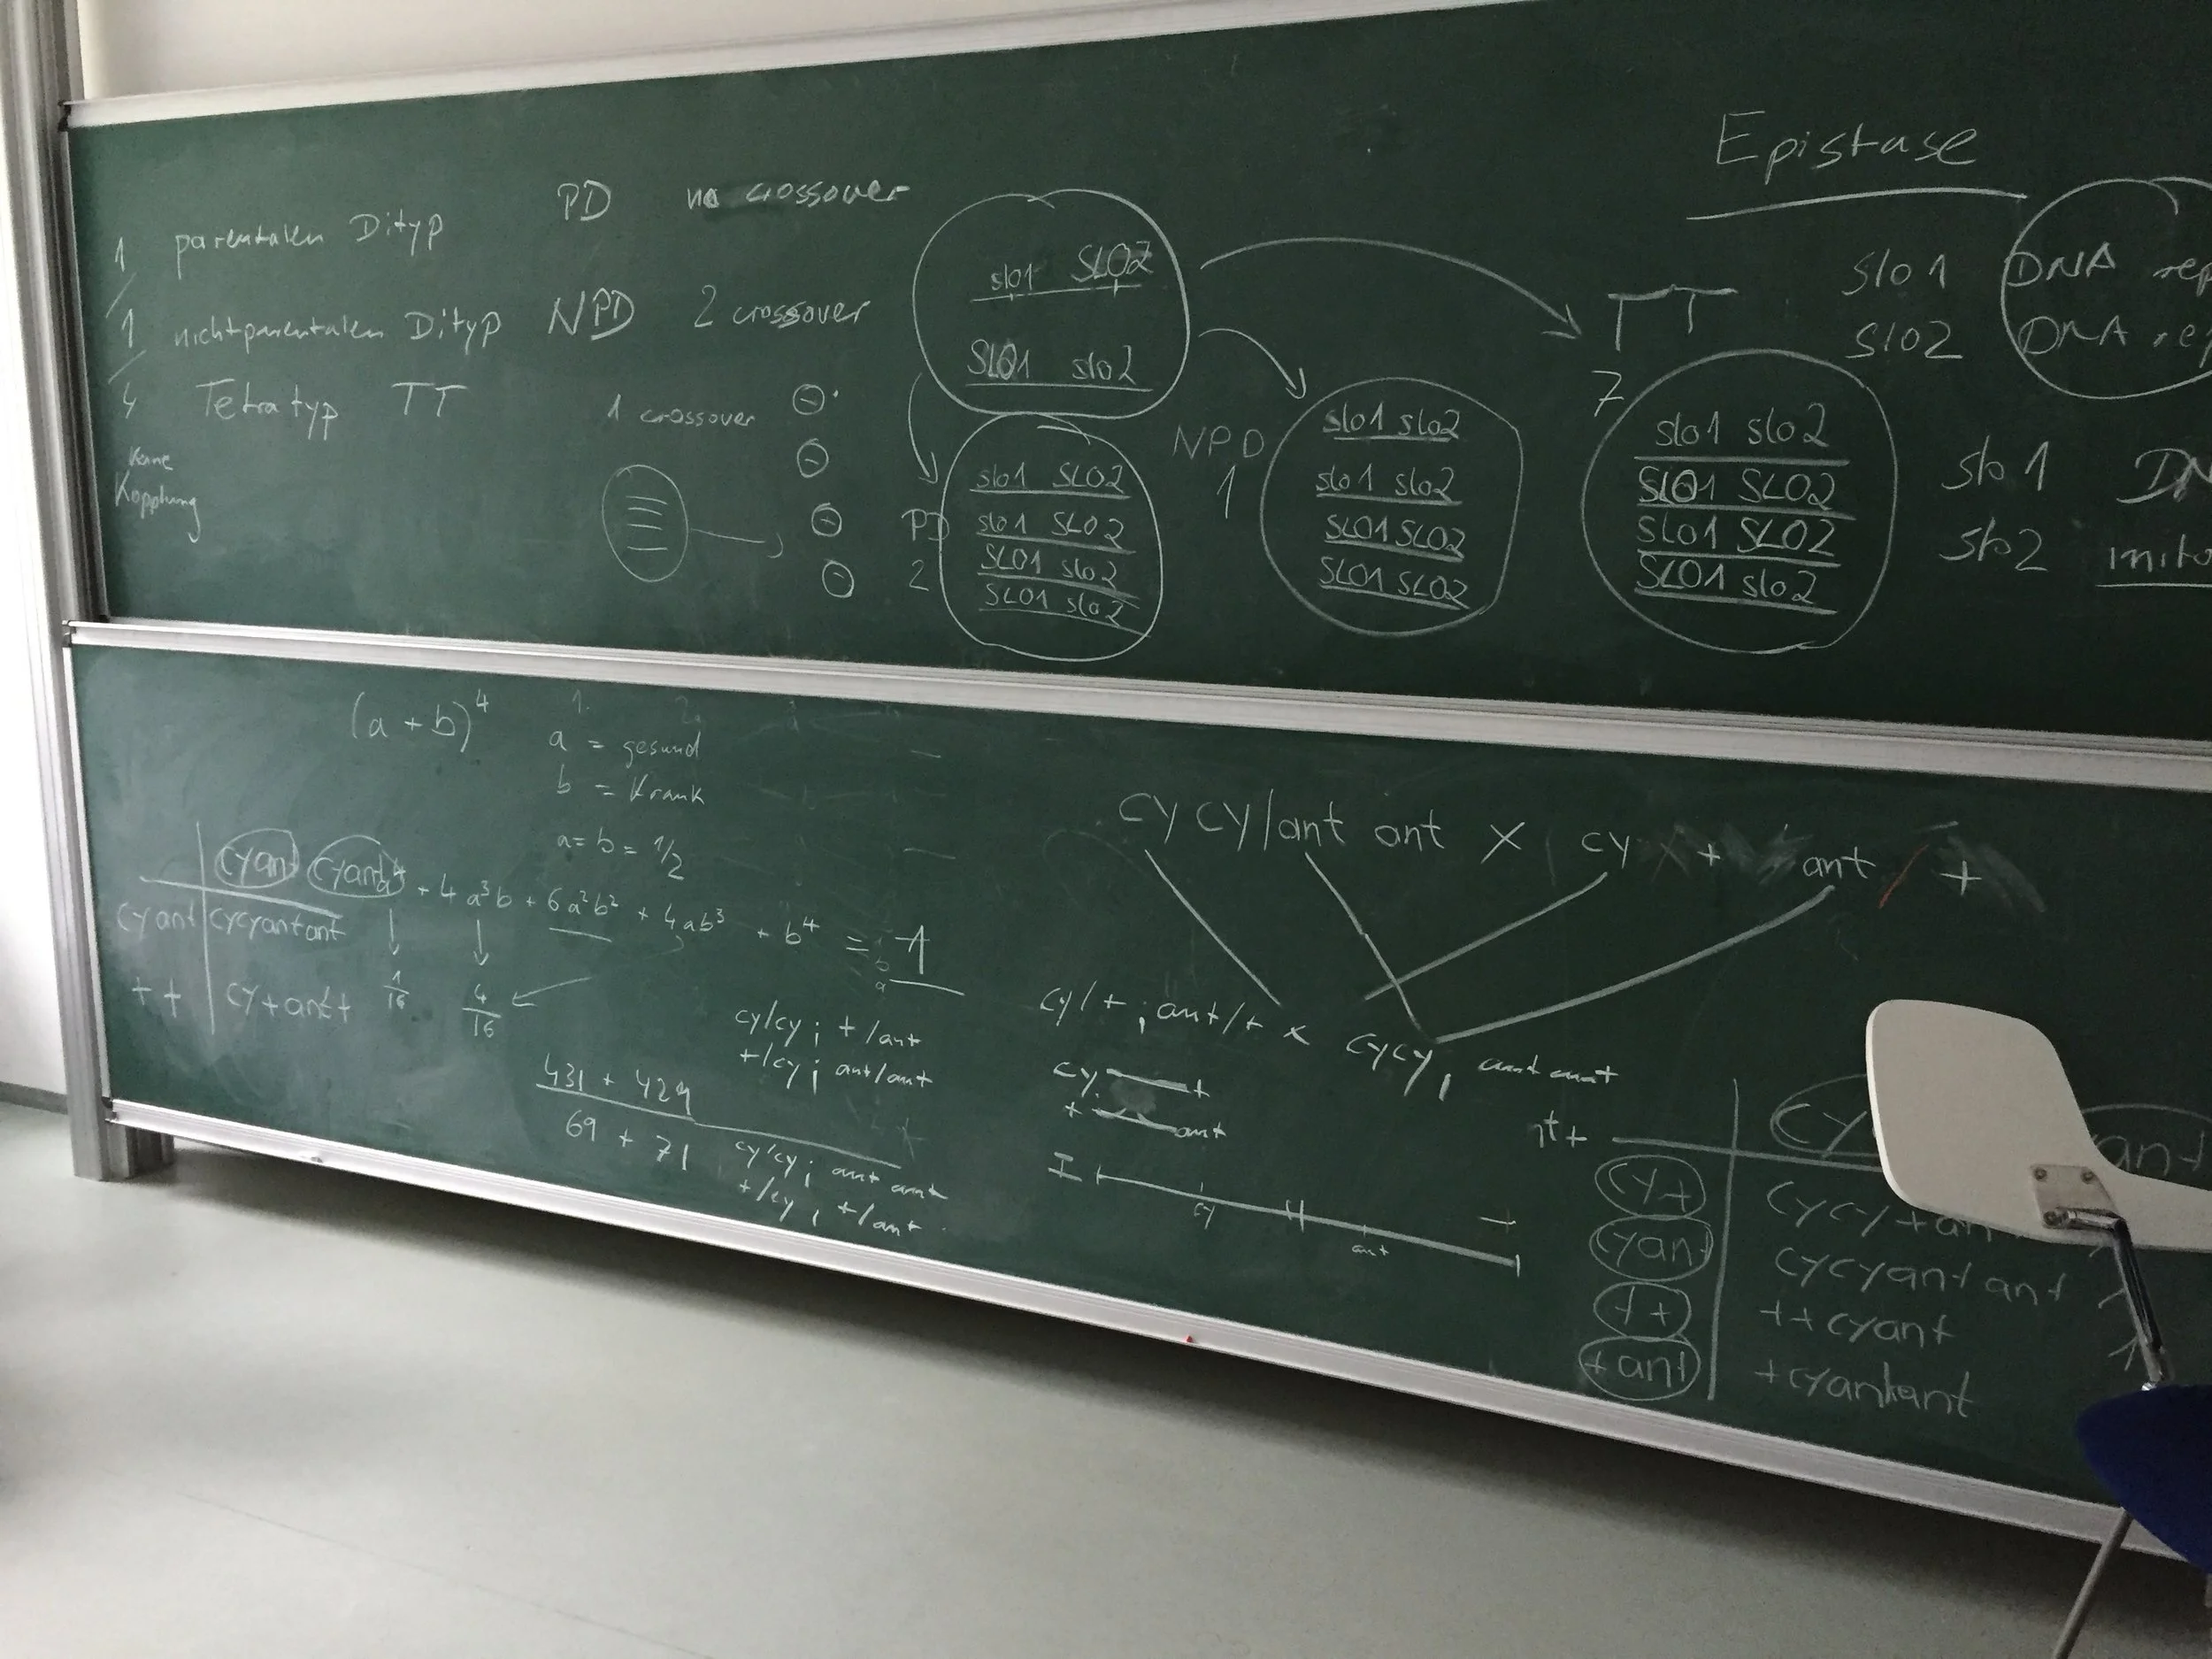 1 parentalen Dityp PD no crossover
1 nichtparentalen Dityp NPD 2 crossover
4 Tetratyp TT 1 crossover
Keine
Kopplung
slo1 SLO2
SLO1 slo2
PD
2
slo1 SLO2
slo1 SLO2
SLO1 slo2
SLO1 slo2
NPD
1
slo1 slo2
slo1 slo2
SLO1 SLO2
SLO1 SLO2
TT
7
slo1 slo2
SLO1 SLO2
slo1 SLO2
SLO1 slo2
Epistase
slo1 DNA rep
slo2 DNA rep
slo1 DN
slo2 mito
(a + b)⁴
1. 2.
a = gesund
b = Krank
a = b = 1/2
a⁴ + 4a³b + 6a²b² + 4ab³ + b⁴ = 1
1/16
4/16
cyant cyant
cyant cycyantant
+ + cy+ant+
431 + 429
69 + 71
cy/cy ; + /ant
+/cy ; ant/ant
cy/cy ; ant ant
+/cy ; +/ant
cy cy/ant ant X cy + ant / +
cy/+ ; ant/+ x cycy, ant ant
cy +
+ ant
I
cy
ant
cy ant
cy+ cycy+an
cyant cycyant ant
++ ++cyant
+ant +cyantant